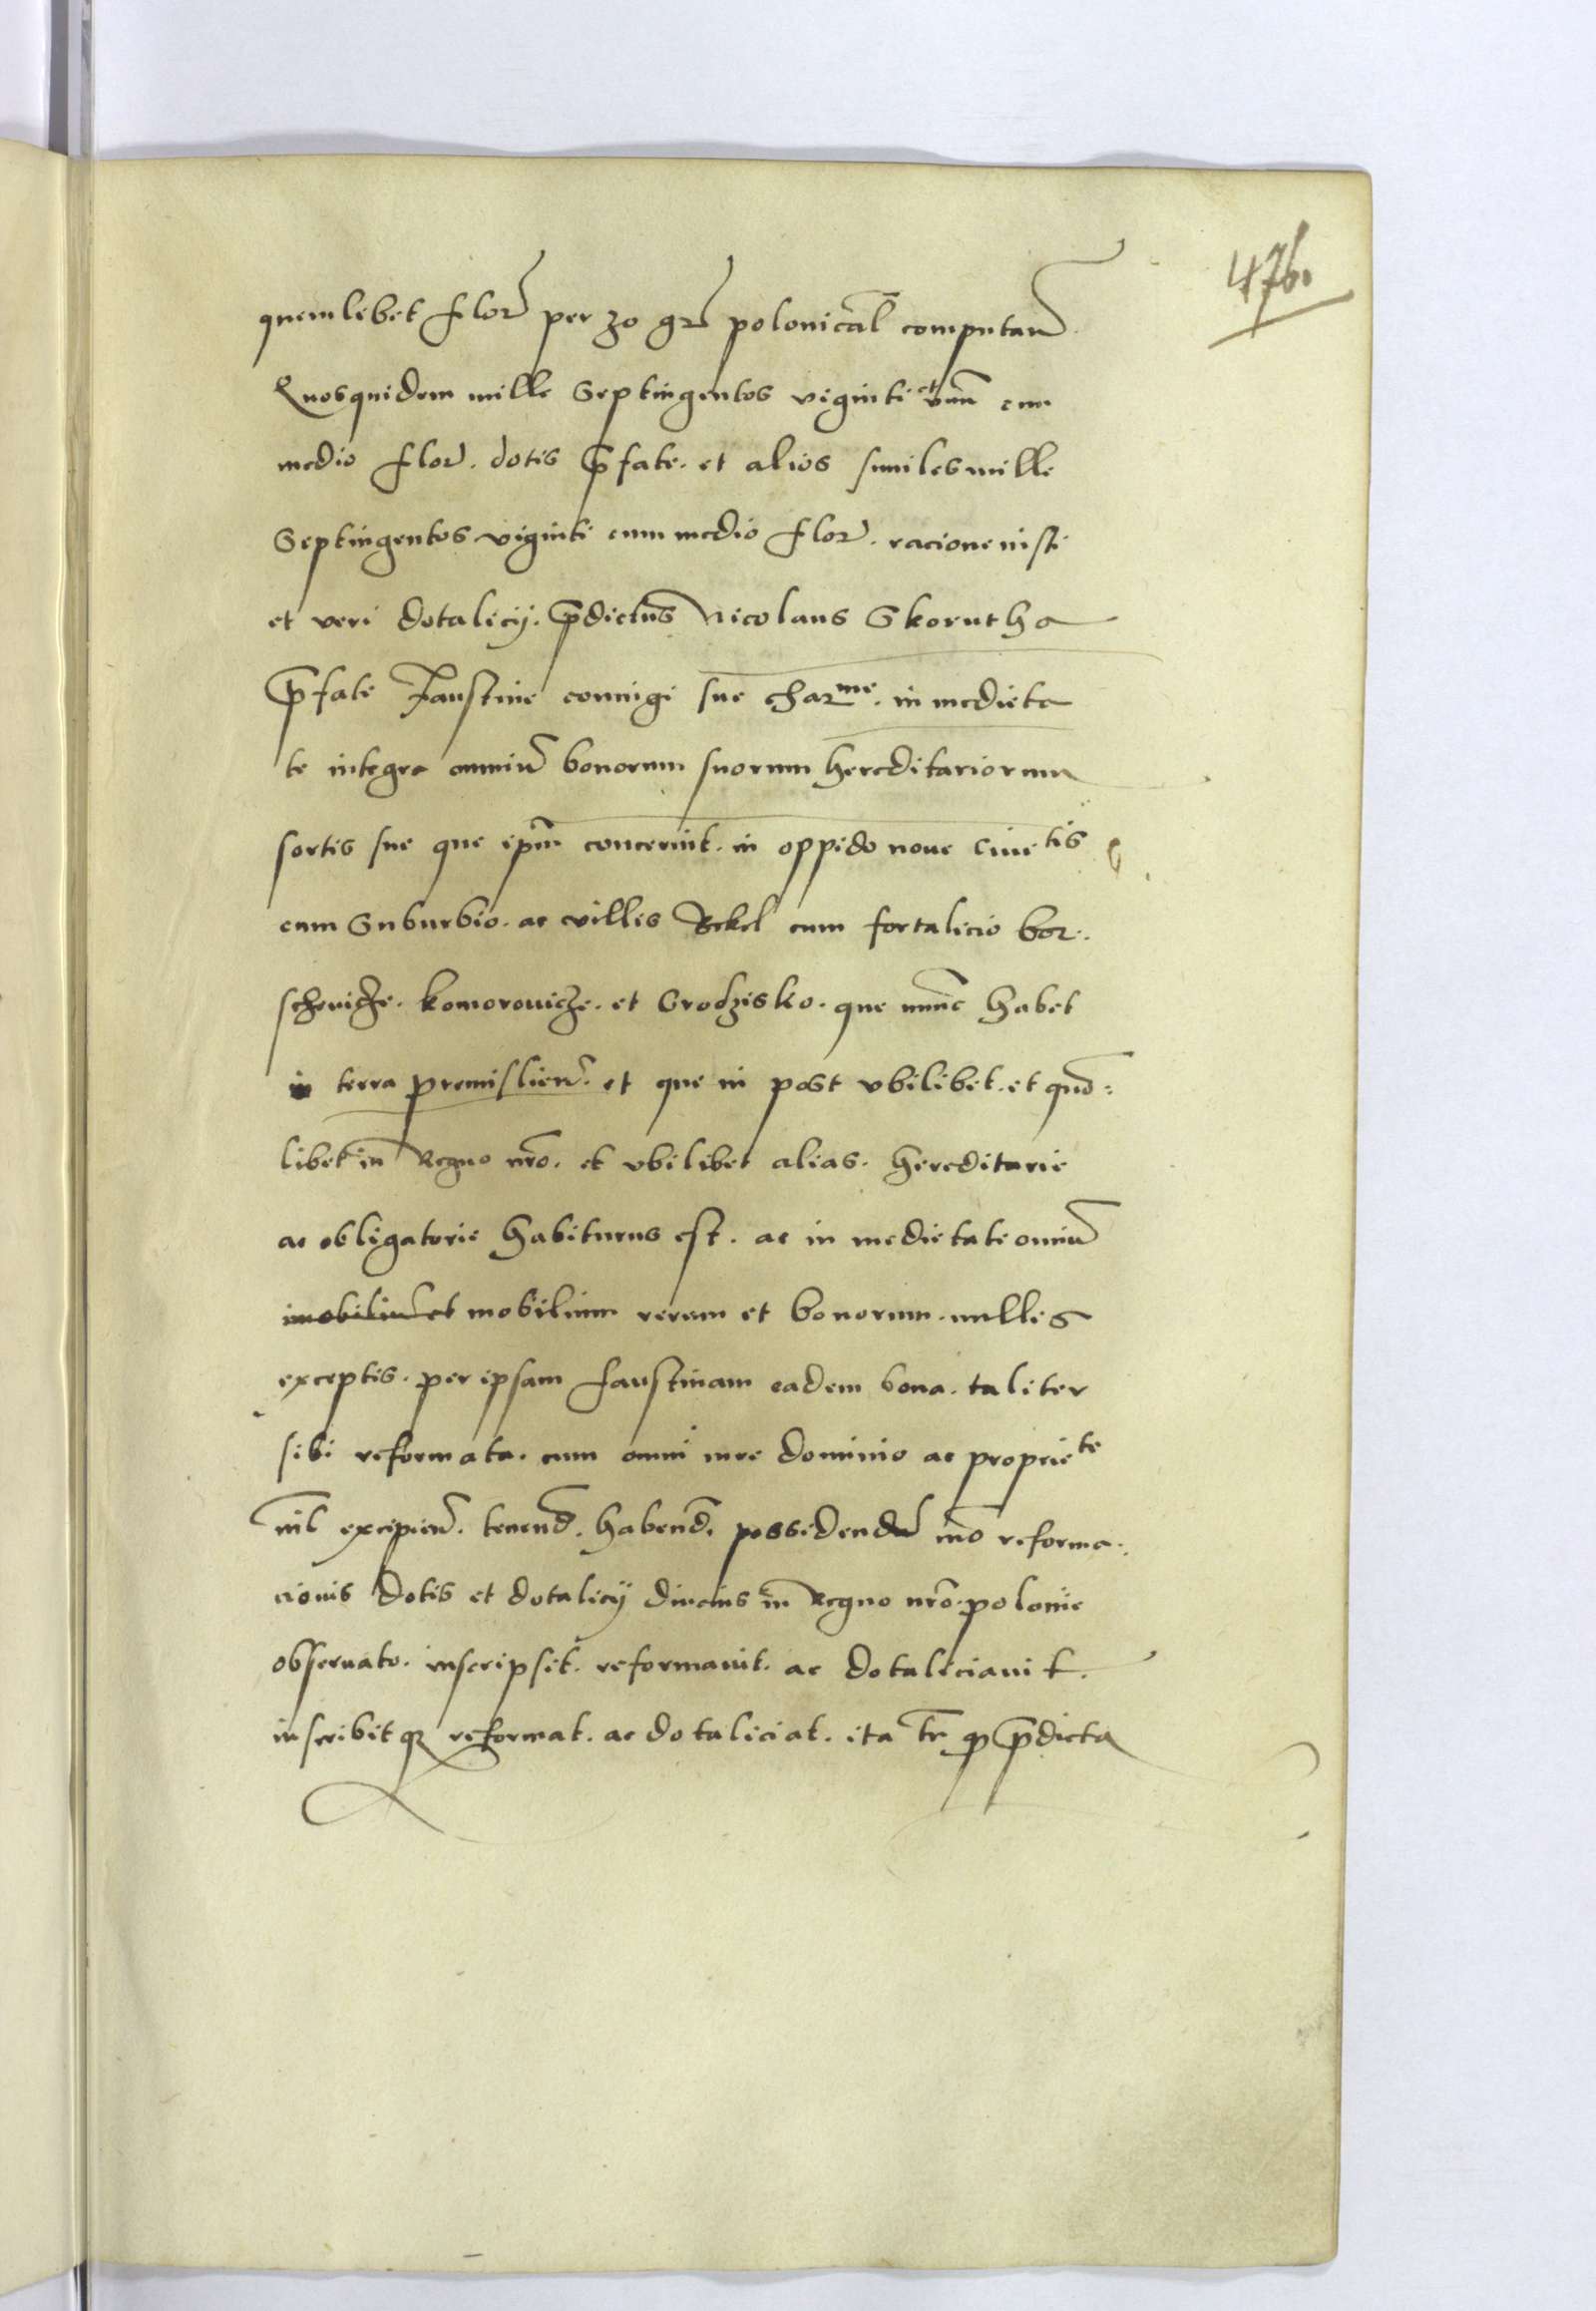 476.
quemlibet flor̃ per 30 gr̃ polonical̃ computan̄
Quosquidem mille Septingentos viginti et vnū cum
medio flor̃. dotis p̄fate. et alios similes mille
Septingentos viginti cum medio flor̃. racione iusti
et veri dotalicij. p̄dictus Nicolaus Skorutha
p̄fate Faustine coniugi sue charme. in medieta
te integra omniū bonorum suorum hereditariorum
sortis sue que ip̄m concernit. in oppido noue Ciuetis
cum Suburbio. ac villis cum fortalicio bor.
schouicze. komorouicze. et Grodzisko. que nunc habet
in terra premislien̄. et que in post vbilibet. et quō=
libet in Regno nr̄o. et vbilibet alias. hereditarie
ac obligatorie habiturus est. ac in medietate omniū
imobiliū et mobilium rerum et bonorum. nullis
exceptis. per ipsam faustinam eadem bona. taliter
sibi reformata. cum omni iure dominio ac propriete
nil excipien̄. tenend̄. habend̄. possidend̄ mō reforma.
cionis dotis et dotalicij diucius in Regno nr̄o polonie
obseruato. inscripsit. reformauit. ac dotaliciauit.
inscribitqȝ reformat. ac dotaliciat. ita tn̄ q p̄dicta